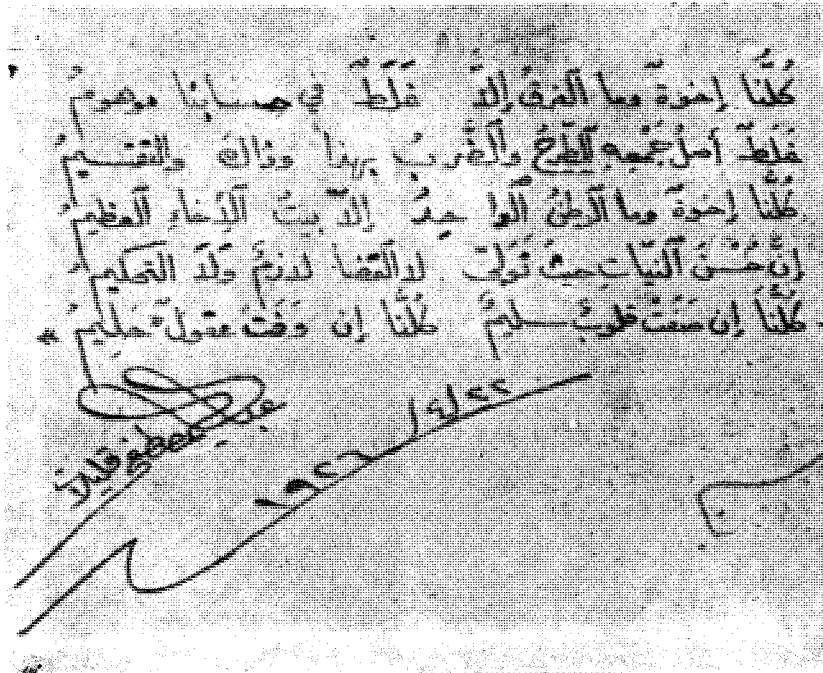 كُلُّنا إخوةٌ وما الفرقُ إلَّا غَلَطٌ في حسابنا موهومُ
غَلَطٌ أصلُ جمعِهِ الطرحُ والضَّربُ بهذا وذاك والتقسيمُ
كُلُّنا إخوةٌ وما الوطنُ الواحدُ إلّا بيتُ الإخاءِ العظيمُ
إنَّ حُسْنَ النيّاتِ حيثُ تَولّت لا القضا لازمٌ ولا التحكيمُ
كُلُّنا إن صَفَتْ قلوبٌ سليمٌ كُلُّنا إن وَفَتْ عقولٌ حليمُ »
٢٢/٤/١٩٢٦
قليلات